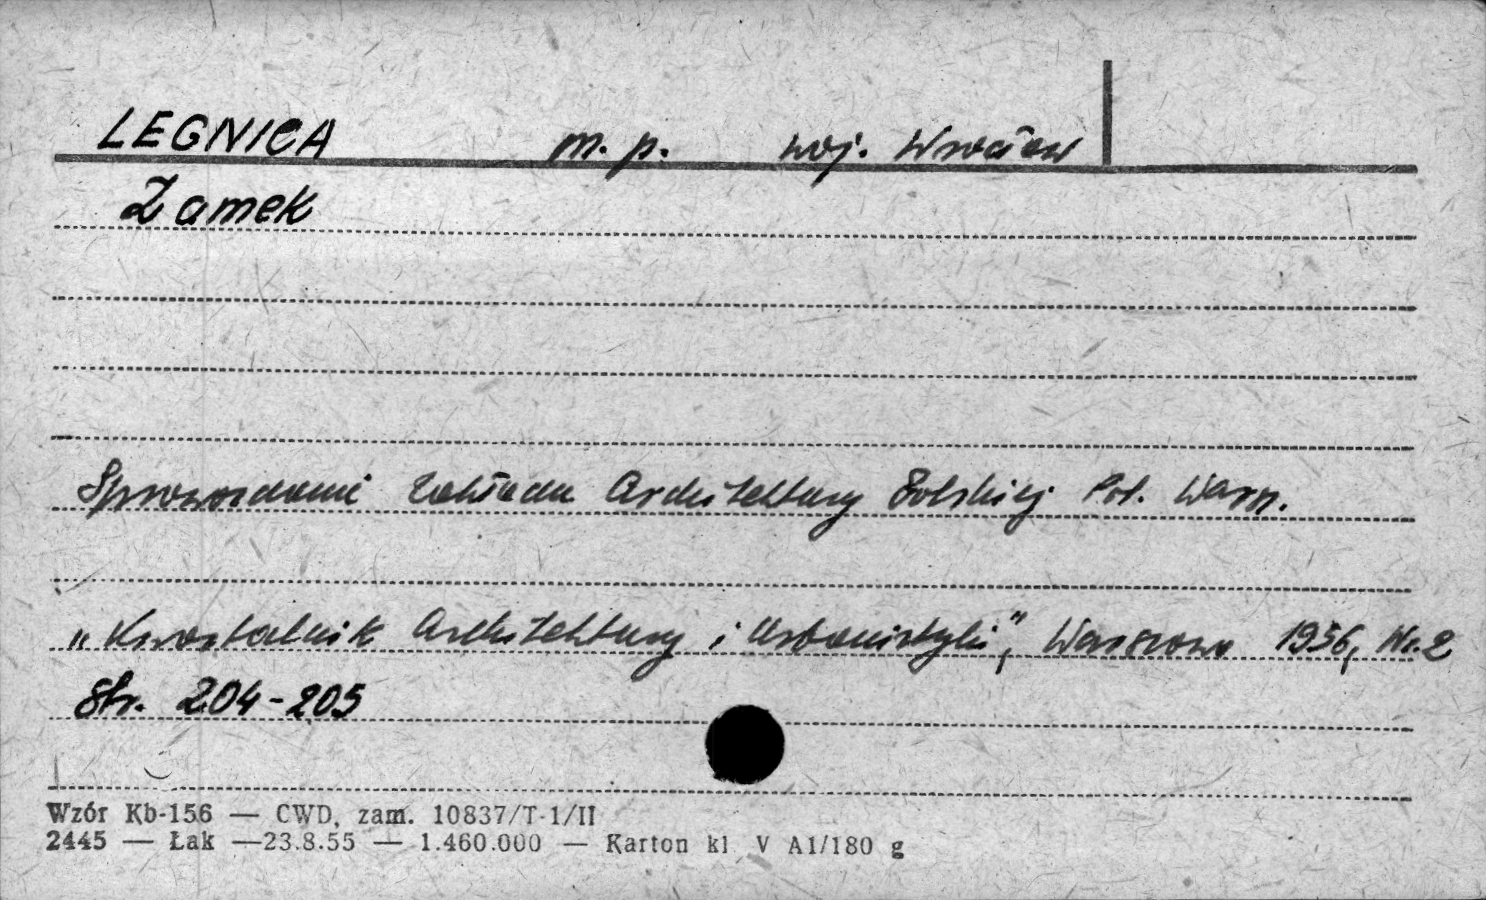 LEGNICA m. p. woj. Wrocław
Zamek
Sprawozdanie Zakładu Architektury Polskiej Pol. Warsz.
„Kwartalnik Architektury i Urbanistyki”, Warszawa 1956, Nr. 2
Str. 204-205
Wzór Kb-156 — CWD, zam. 10837/T-1/II
2445 — Łak —23.8.55 — 1.460.000 — Karton kl V A1/180 g